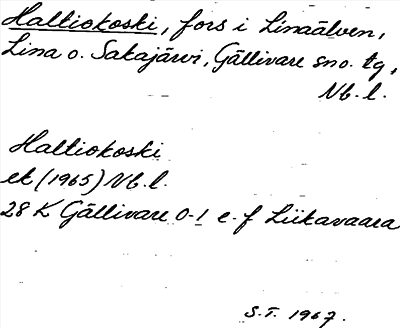 Haltiokoski, fors i Linaälven,
Lina o. Sakajärvi, Gällivare sno. tg,
Nb. l.
Haltiokoski
ek (1965) Nb. l.
28 K Gällivare 0-1 e-f Liikavaara
S.T. 1967.